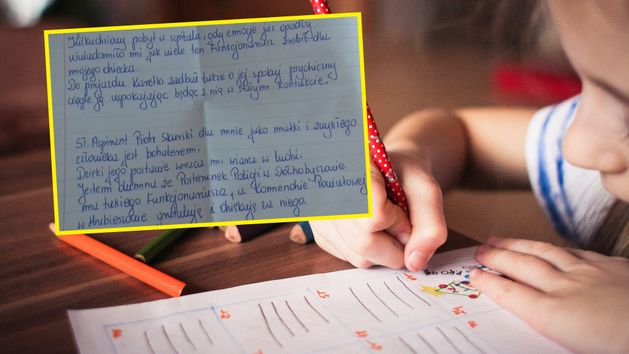 Kilkudniowy pobyt w szpitalu, gdy emocje już opadły
uświadomiło mi jak wiele ten Funkcjonariusz zrobił dla
mojego dziecka.
Do przyjazdu karetki zadbał także o jej spokój psychiczny
ciągle ją uspokajając będąc z nią w kontakcie.
ST. Aspirant Piotr Skurski dla mnie jako matki i zwykłego
człowieka jest bohaterem.
Dzięki jego postawie wraca mi wiara w ludzi.
Jestem dumna że Posterunek Policji w Dołhobyczowie
ma takiego Funkcjonariusza, a Komendzie Powiatowej
w Hrubieszowie gratuluję i dziękuję za niego.